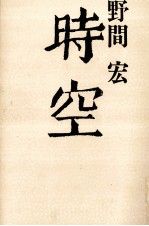 野間 宏
時空